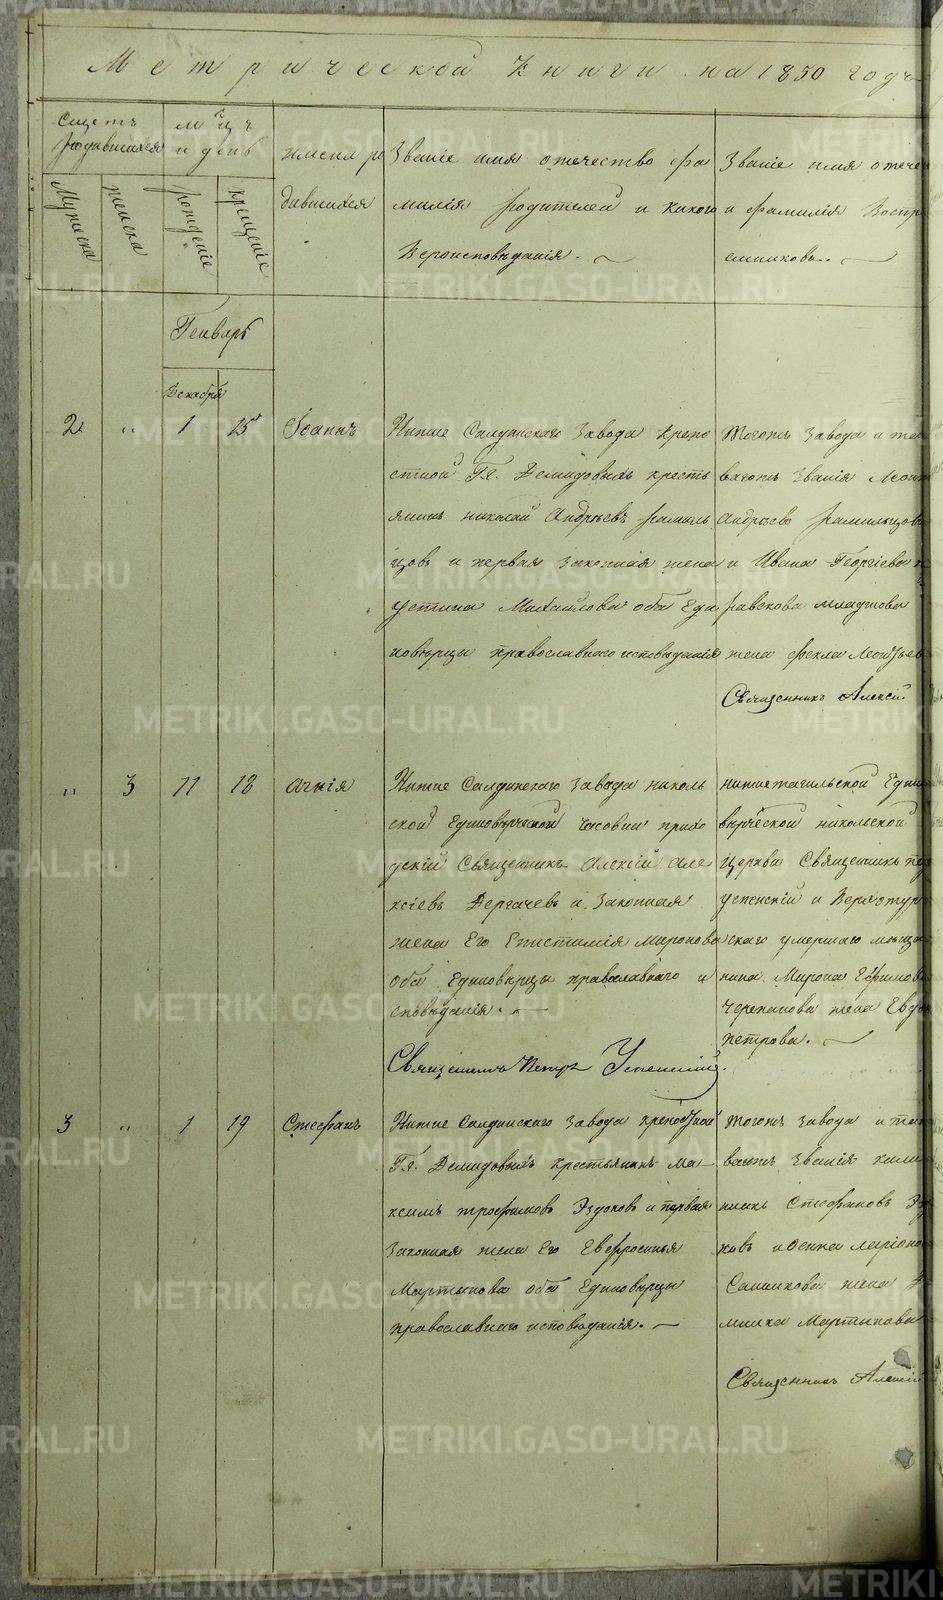 Метрической Книги на 1850 годъ
Счетъ родившихся
мцъ и день
имена родившихся
Званіе имя отечество фамилія родителей и какого Вероисповѣданія.
Званіе имя отече
и фамилія Воспр
емниковъ.
Мужеска
женска
рожденіе
крещеніе
Генварь
Декабря
2 " 1 15 Іоаннъ
Нижне Салдинскаго завода крепо
стной Гг. Демидовыхъ кресть
янинъ николай Андреевъ
цовъ и первая законная жена
устина Михайлова оба Еди
новѣрцы православнаго исповѣданія
Тогожъ завода и та
вагожъ Званія Леон
Андреево
и Ивана Георгіева
жена Фекла Леонтьев
Священникъ Алексій
" 3 11 18 Агнія
Нижне Салдинскаго завода николь
ской Единовѣрческой часовни прихо
дскій Священникъ Алексій Але
ксіевъ Дергачевъ и законная
жена Его Епистимія миронова
оба Единовѣрцы православнаго и
сповѣданія.
Священникъ Петръ Успенскій.
нижнетагильской Един
вѣрческой никольской
Церкви Священникъ пе
успенскій и Верхотур
скаго умершаго мѣща
нина Мирона Ефимов
Черепанова жена Евдо
петрова.
3 " 1 19 Стефанъ
Нижне Салдинскаго завода крепостной
Гг. Демидовыхъ крестьянинъ Ма
ксимъ трофимовъ и первая
законная жена Его Евфросинья
Мартынова оба Единовѣрцы
православнаго исповѣданія.
Тогожъ завода и та
вагожъ Званія кали
никъ Стефановъ
ковъ и
жена
Мартынова
Священникъ Алексій
METRIKI.GASO-URAL.RU